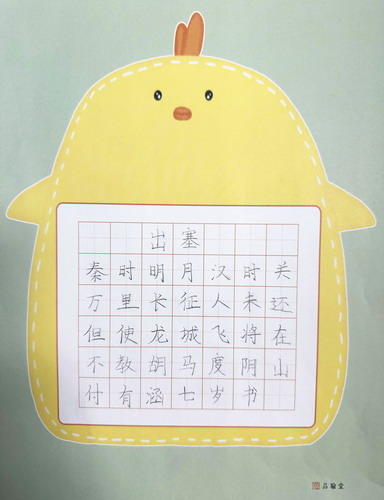 出塞
秦时明月汉时关
万里长征人未还
但使龙城飞将在
不教胡马度阴山
付有涵七岁书